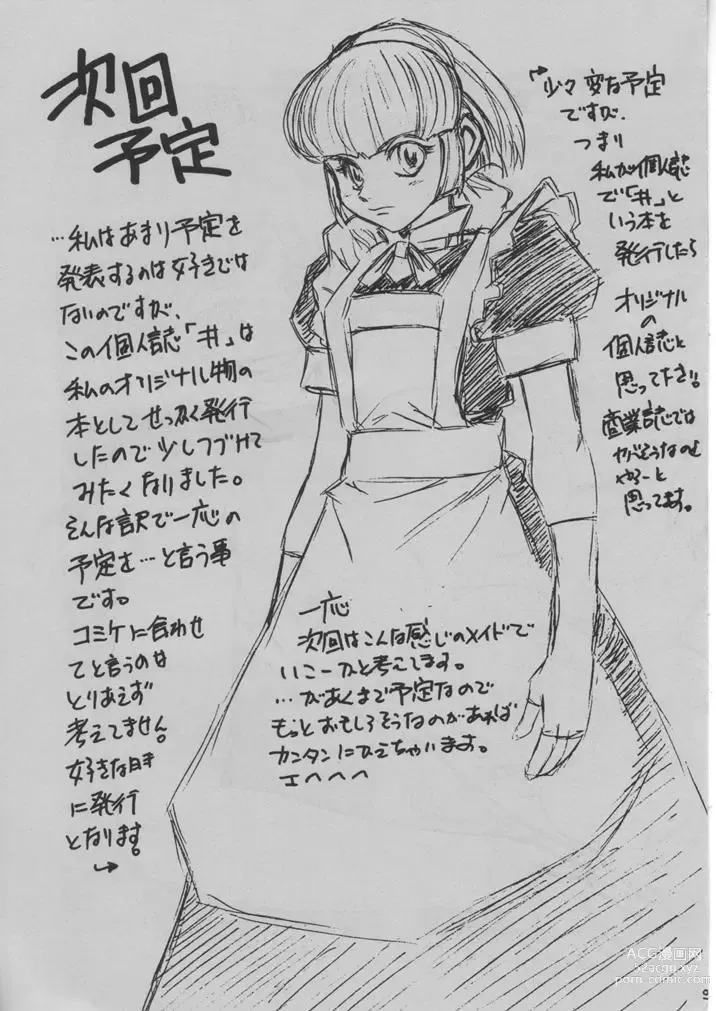 次回
予定
…私はあまり予定を
発表するのは好きでは
ないのですが、
この個人誌「丼」は
私のオリジナル物の
本としてせっかく発行
したので少しつづけて
みたくなりました。
そんな訳で一応の
予定を…と言う事
です。
コミケに合わせ
てと言うのは
とりあえず
考えてません。
好きな時
に発行
となります。
→
→少々変な予定
ですが、
つまり
私が個人誌
で「丼」と
いう本を
発行したら
オリジナル
の
個人誌と
思って下さい。
商業誌では
ヤバそうなのを
やろーと
思ってます。
一応
次回はこんな感じのメイドで
いこーかと考えてます。
…があくまで予定なので
もっとおもしろそうなのがあれば
カンタンにかえちゃいます。
エヘヘヘ
ACG漫画网
52acgg.xyz
porn-comic.com
9